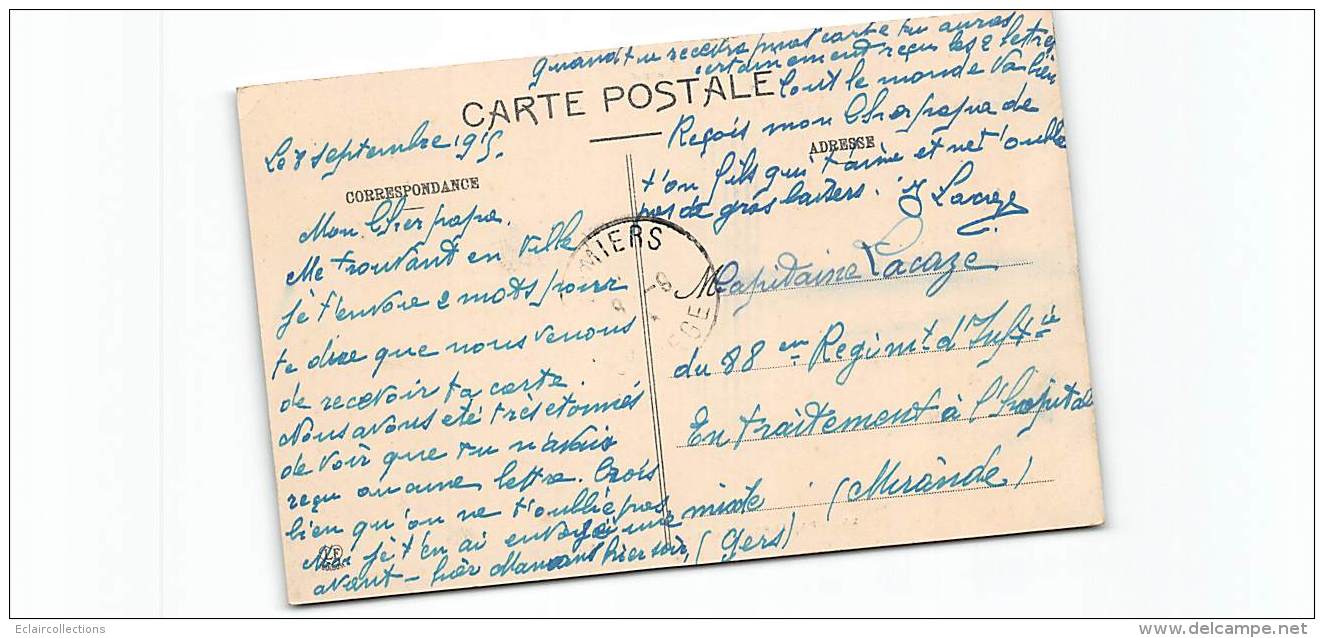 CARTE POSTALE
CORRESPONDANCE
ADRESSE
Le 8 septembre 1915.
Mon Cher papa.
Me trouvant en ville
je t'envoie 2 mots pour
te dire que nous venons
de recevoir ta carte.
Nous avons été très etonnés
de voir que tu n'avais
reçu aucune lettre. Crois
bien qu'on ne t'oublie pas
Moi je t'en ai envoyé une
avant-hier Maman hier soir,
quand tu recevras carte tu auras
certainement reçu les 2 lettres
Tout le monde va bien
Reçois mon Cher papa de
t'on fils qui t'aime et ne t'oublie
pas de gros baisers. Lacaze
MIERS
M Capitaine Lacaze
du 88 em Regim.t d'Inf.t ie
En traitement à l'hopital
mixte (Mirande)
(Gers)
Eclaircollections
www.delcampe.net